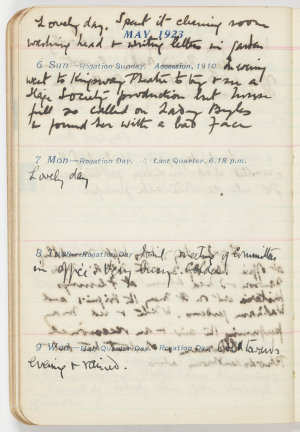 Lovely day. Spent it cleaning room
MAY, 1923
washing head & writing letters in garden
6 Sun—Rogation Sunday. Accession, 1910
evening
went to Kingsway Theatre to try & see a
Stage Society production but house
full so called on Lady Byles
& found her with a bad face
7 Mon—Rogation Day. Last Quarter, 6.18 p.m.
Lovely day
8 Tues—Rogation Day. Joint meeting of Committees
in office & very busy. Colder
9 Wed—Rogation Day. Cold towards
evening & rained.